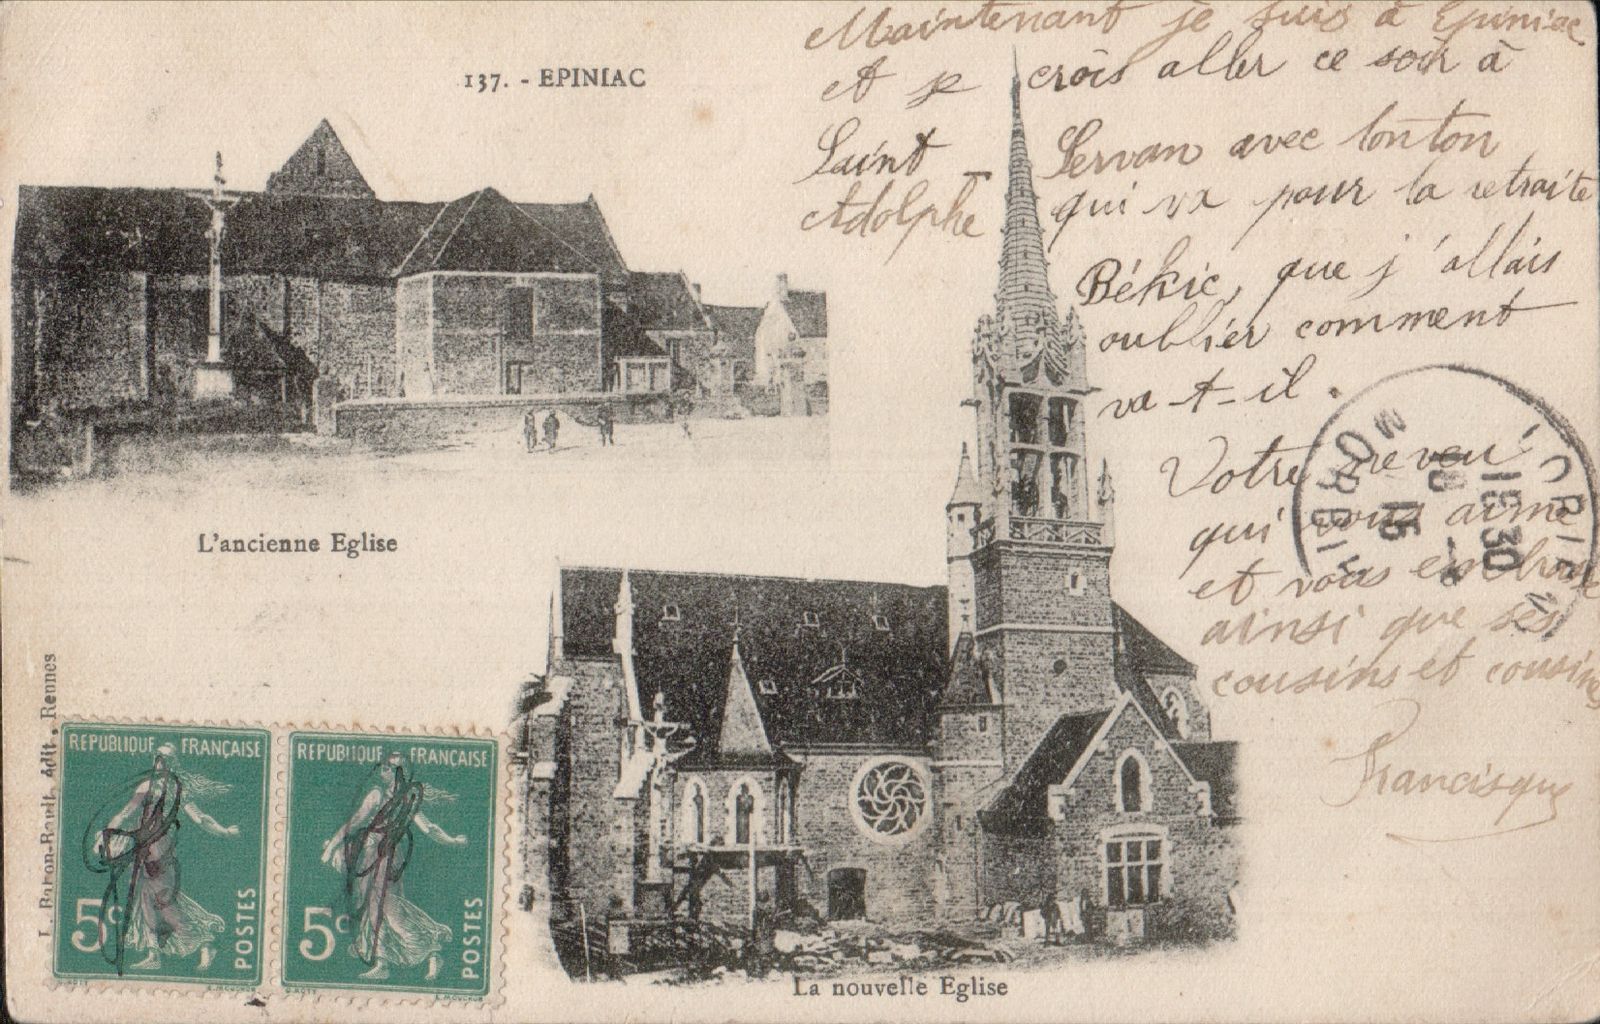 137. - EPINIAC
Maintenant je suis à Epiniac
et je crois aller ce soir à
Saint Servan avec tonton
Adolphe qui va pour la retraite
Békic, que j'allais
oublier comment
va-t-il.
Votre neveu
qui vous aime
et vous embrasse
ainsi que ses
cousins et cousines
Francisque
L'ancienne Eglise
La nouvelle Eglise
L. Baron-Roudé, édit., Rennes
REPUBLIQUE FRANÇAISE
5c POSTES
REPUBLIQUE FRANÇAISE
5c POSTES
LORIENT
MORBIHAN
15 30
15